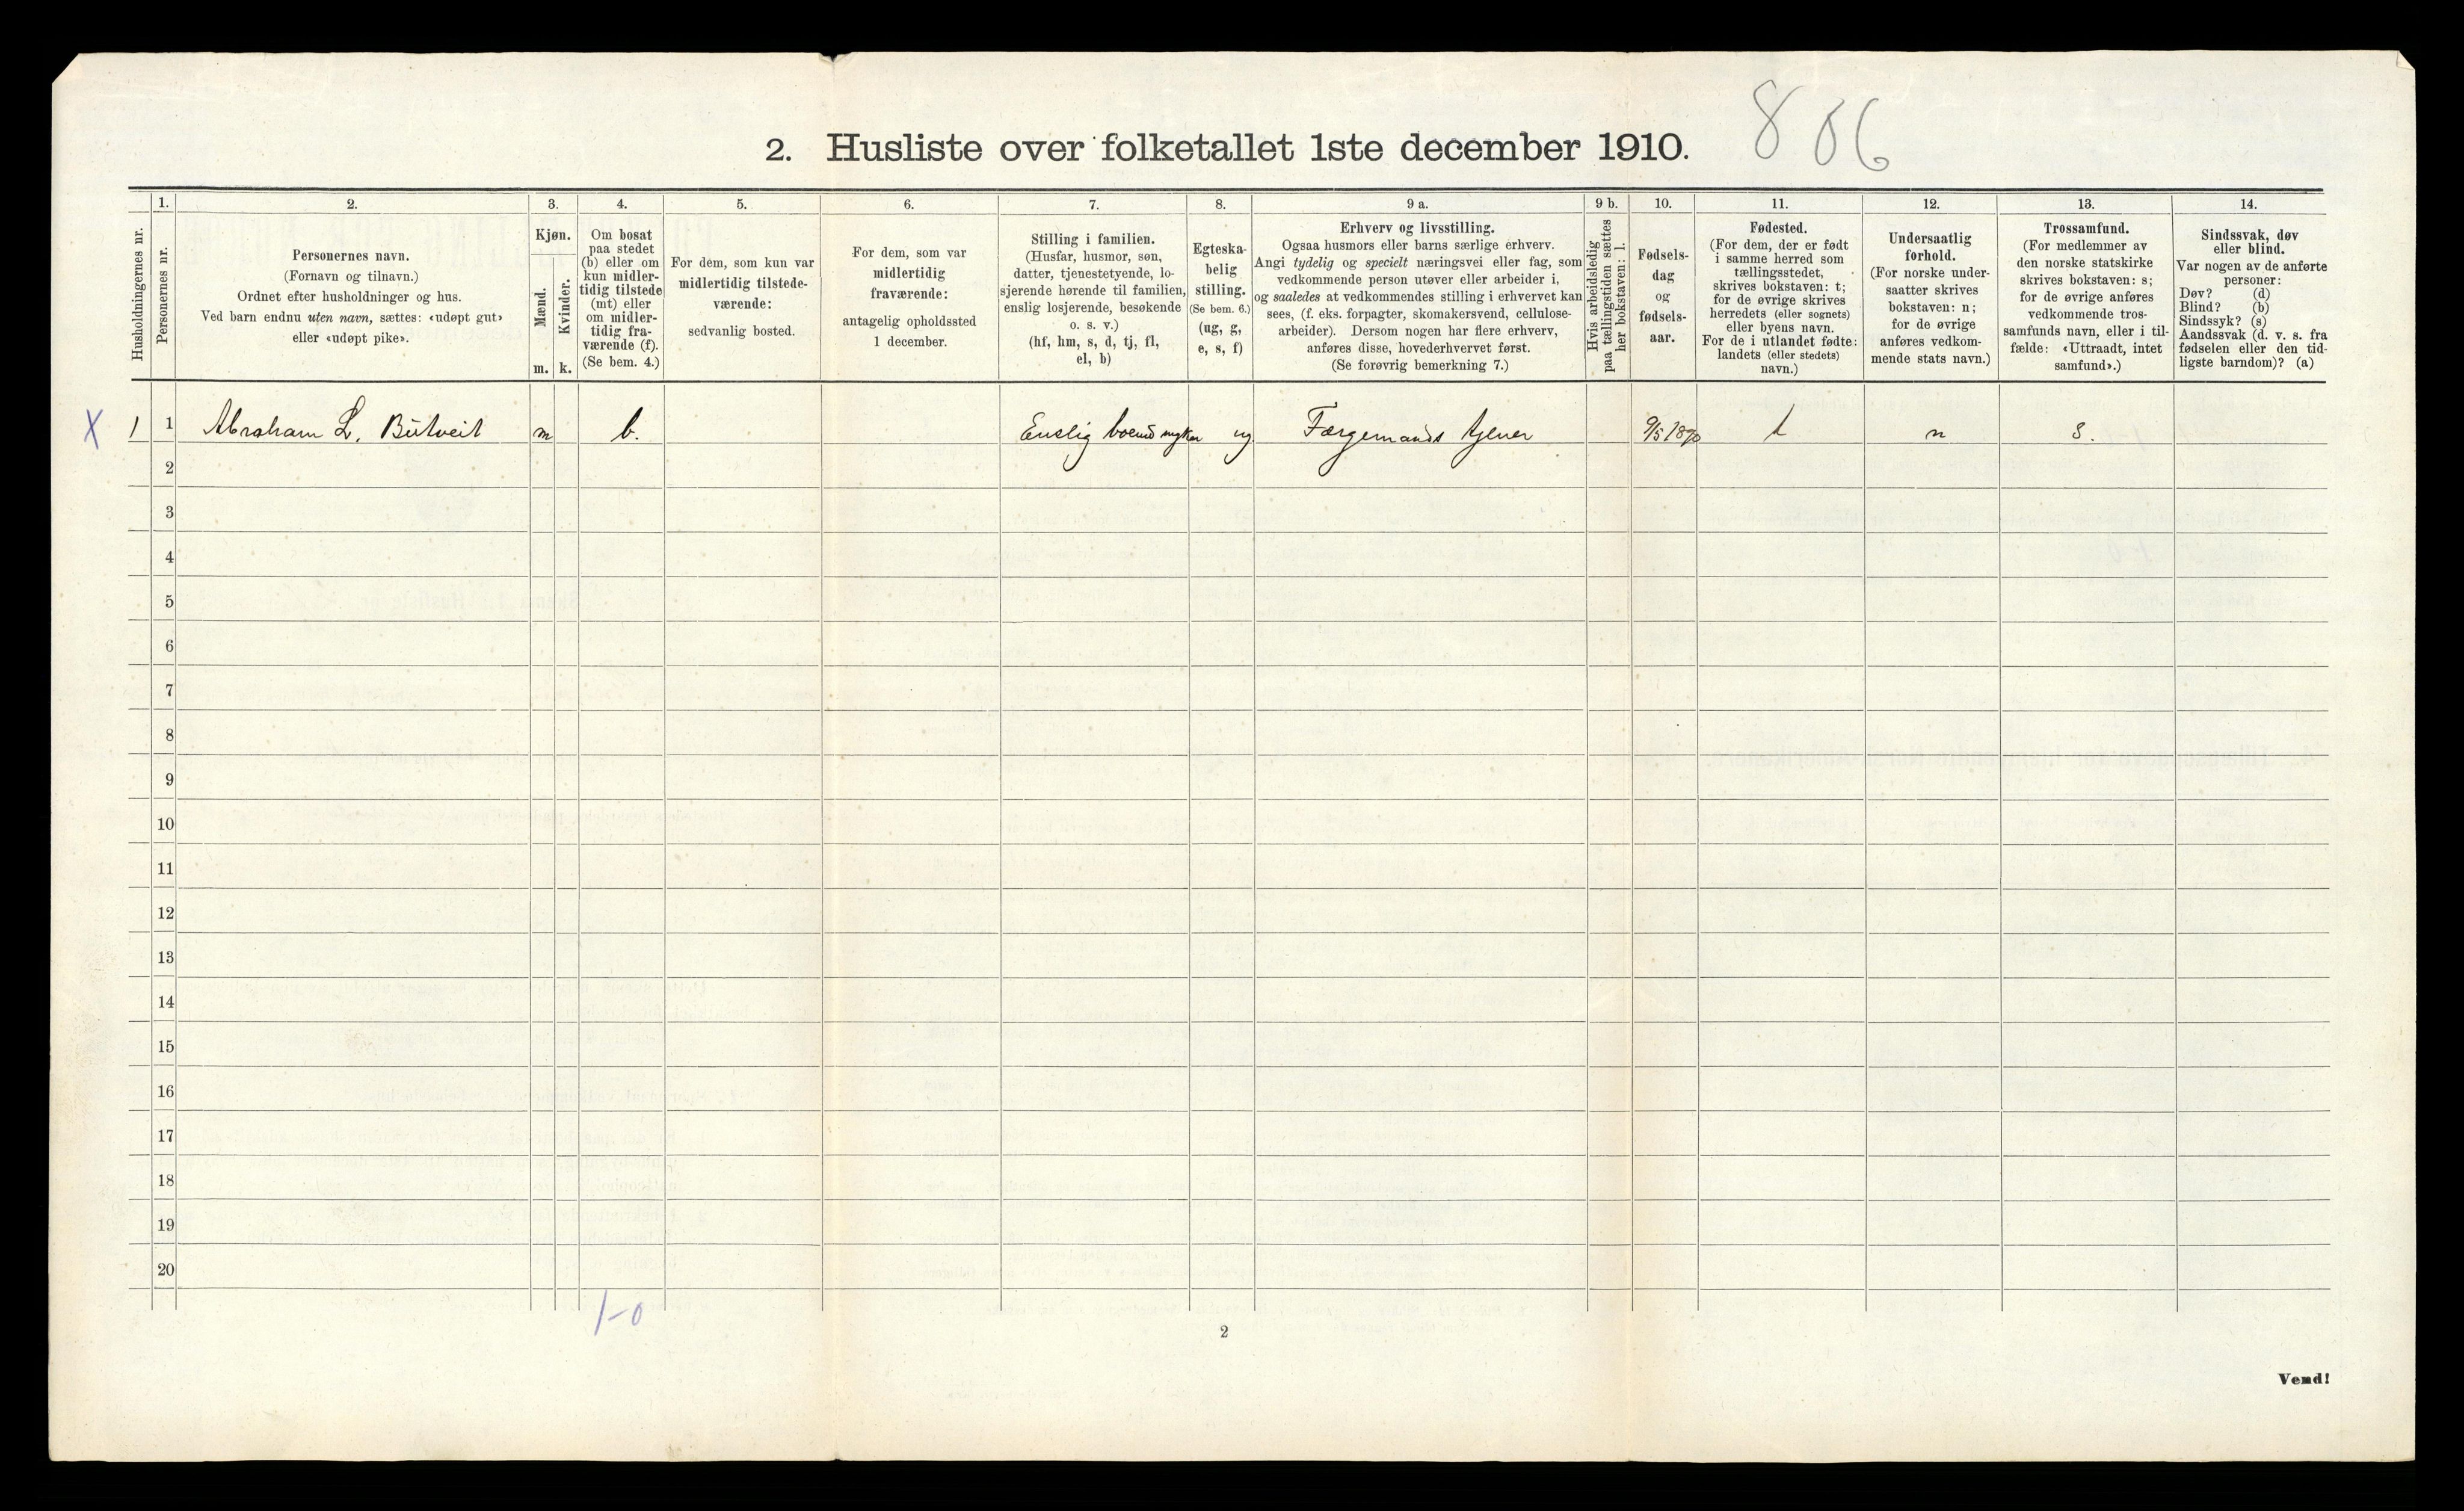 2. Husliste over folketallet 1ste december 1910. 886
Husholdningernes nr.
1.
Personernes nr.
2.
Personernes navn.
(Fornavn og tilnavn.)
Ordnet efter husholdninger og hus.
Ved barn endnu uten navn, sættes: «udøpt gut»
eller «udøpt pike».
3.
Kjøn.
Mænd.
Kvinder.
m. k.
4.
Om bosat
paa stedet
(b) eller om
kun midler-
tidig tilstede
(mt) eller
om midler-
tidig fra-
værende (f).
(Se bem. 4.)
5.
For dem, som kun var
midlertidig tilstede-
værende:
sedvanlig bosted.
6.
For dem, som var
midlertidig
fraværende:
antagelig opholdssted
1 december.
7.
Stilling i familien.
(Husfar, husmor, søn,
datter, tjenestetyende, lo-
sjerende hørende til familien,
enslig losjerende, besøkende
o. s. v.)
(hf, hm, s, d, tj, fl,
el, b)
8.
Egteska-
belig
stilling.
(Se bem. 6.)
(ug, g,
e, s, f)
9 a.
Erhverv og livsstilling.
Ogsaa husmors eller barns særlige erhverv.
Angi tydelig og specielt næringsvei eller fag, som
vedkommende person utøver eller arbeider i,
og saaledes at vedkommendes stilling i erhvervet kan
sees, (f. eks. forpagter, skomakersvend, cellulose-
arbeider). Dersom nogen har flere erhverv,
anføres disse, hovederhvervet først.
(Se forøvrig bemerkning 7.)
9 b.
Hvis arbeidsledig
paa tællingstiden sættes
her bokstaven: l.
10.
Fødsels-
dag
og
fødsels-
aar.
11.
Fødested.
(For dem, der er født
i samme herred som
tællingsstedet,
skrives bokstaven: t;
for de øvrige skrives
herredets (eller sognets)
eller byens navn.
For de i utlandet fødte:
landets (eller stedets)
navn.)
12.
Undersaatlig
forhold.
(For norske under-
saatter skrives
bokstaven: n;
for de øvrige
anføres vedkom-
mende stats navn.)
13.
Trossamfund.
(For medlemmer av
den norske statskirke
skrives bokstaven: s;
for de øvrige anføres
vedkommende tros-
samfunds navn, eller i til-
fælde: «Uttraadt, intet
samfund».)
14.
Sindssvak, døv
eller blind.
Var nogen av de anførte
personer:
Døv? (d)
Blind? (b)
Sindssyk? (s)
Aandssvak (d. v. s. fra
fødselen eller den tid-
ligste barndom)? (a)
X 1 1 Abraham L. Butveit m b. Enslig boend ug Færgemands tjener 9/5 1890 t n s.
2
3
4
5
6
7
8
9
10
11
12
13
14
15
16
17
18
19
20
1-0
2
Vend!